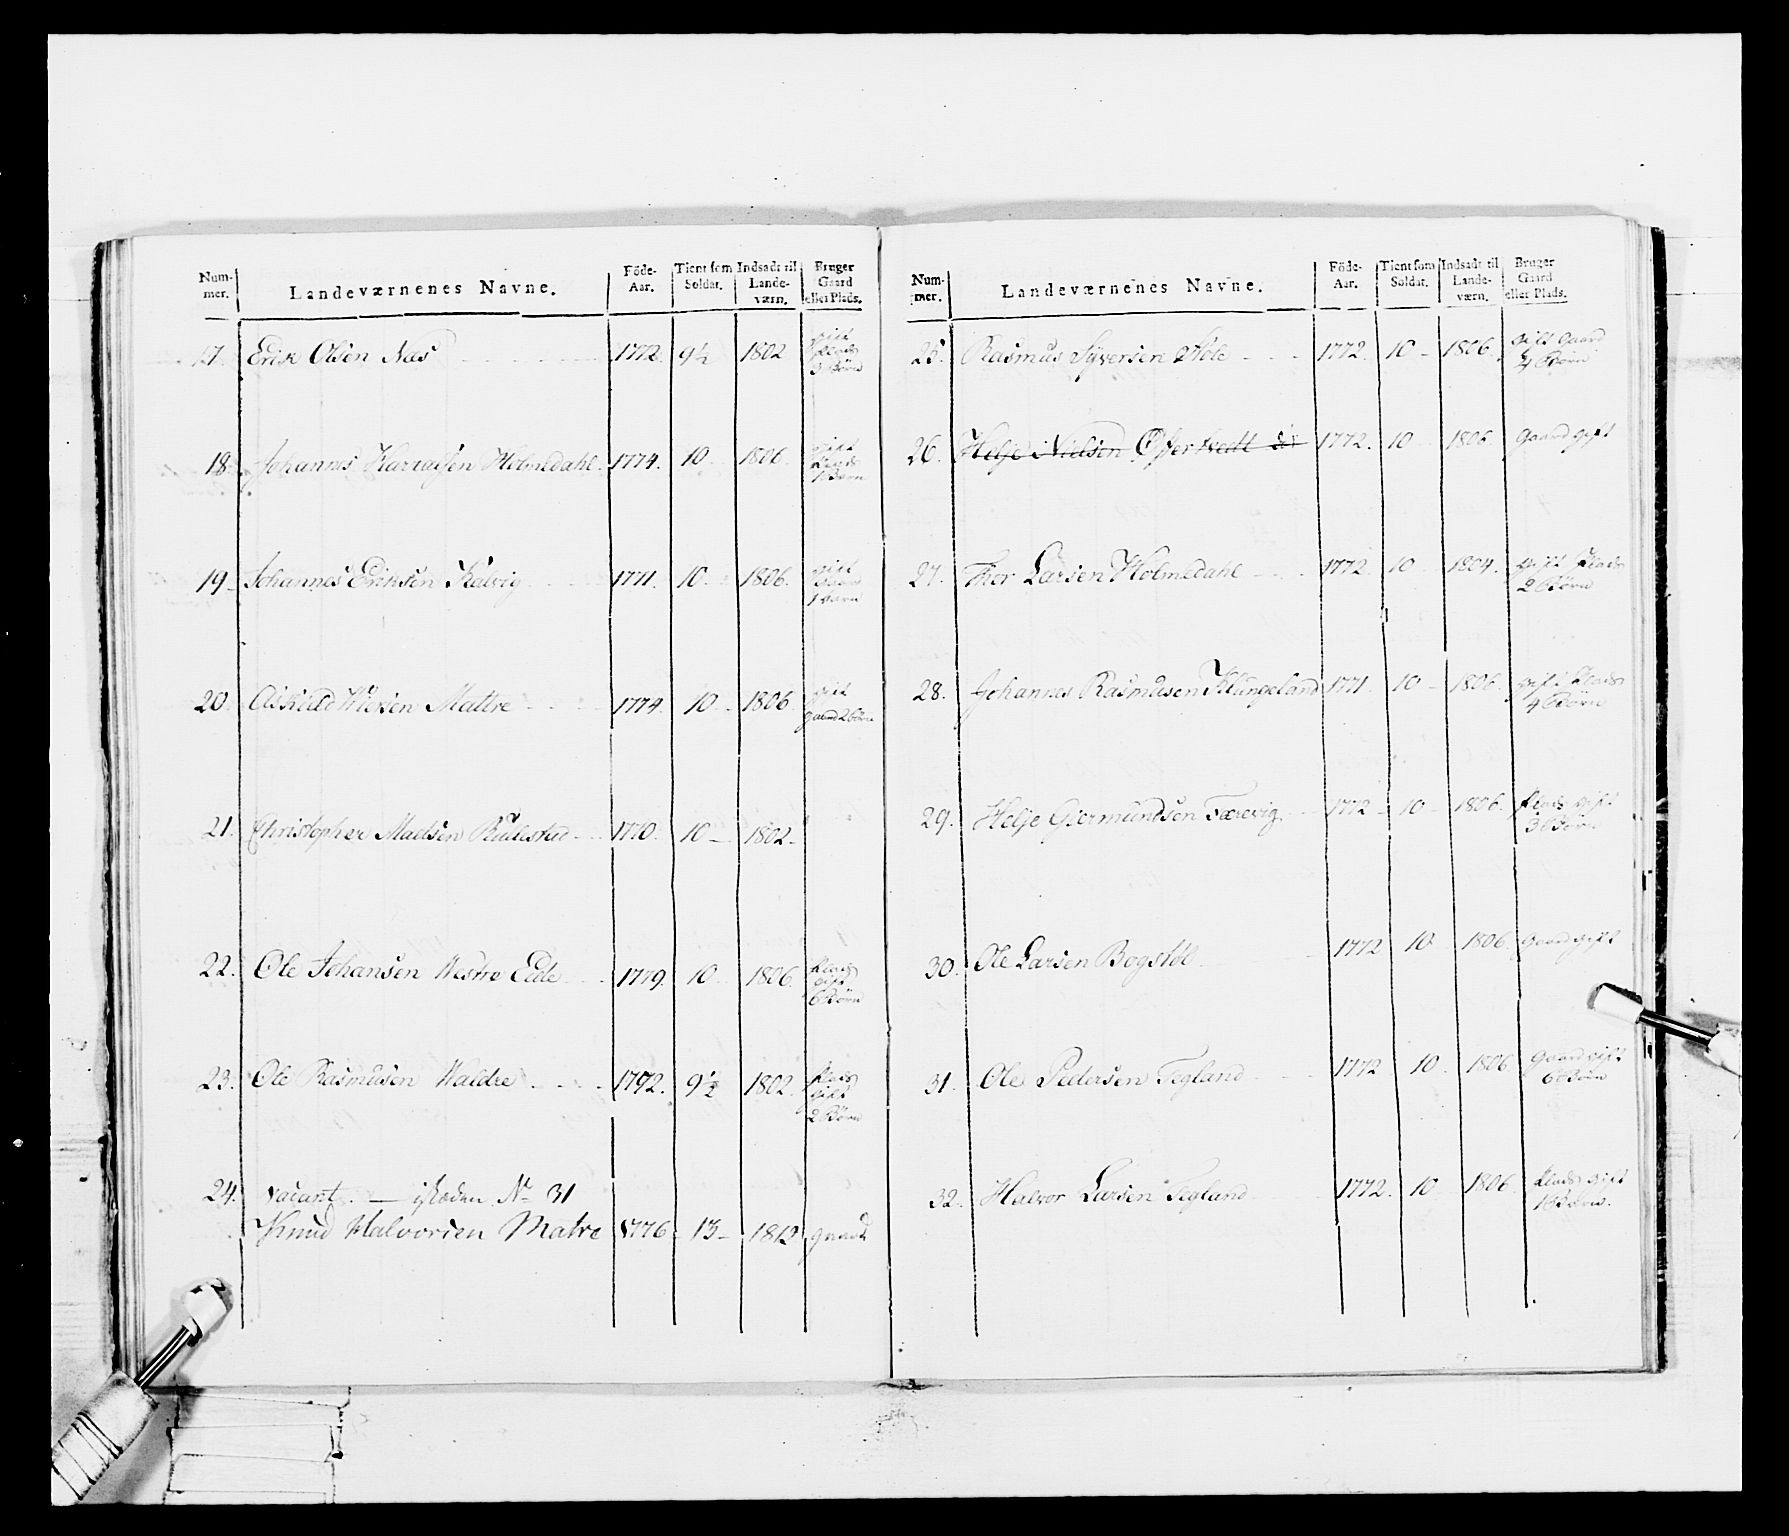 Num-
mer.
Landeværnenes Navne.
Föde-
Aar.
Tient som
Soldat.
Indsadt til
Lande-
værn.
Bruger
Gaard
eller Plads.
17. Erik Olsen Næs 1772. 9½ 1802 gift
Plads
3 Børn
18 Johannes Holmedahl 1774. 10 1806. gift
Plads
1 Barn
19 Johannes Eriksen Kalvig 1771. 10 1806. gift
1 Barn
20. Mattre 1774. 10 1806. gift
gaard 2 Børn
21. Christopher Madsen 1770. 10 1802
22. Ole Johansen Westre Eide 1779. 10 1806. Plads
gift
6 Børn
23. Ole Rasmusen Waldre 1772. 9½ 1802. Plads
gift
2 Børn
24. vacant. — isteden No 31
Knud Halvorsen Matre 1776 13 1812 gaard
Num-
mer.
Landeværnenes Navne.
Föde-
Aar.
Tient som
Soldat.
Indsadt til
Lande-
værn.
Bruger
Gaard
eller Plads.
25. Rasmus Syversen Høle 1772. 10 1806. gift Gaard
4 Børn
26. Helje Nielsen 1772. 10 1806. Gaard gift
27. Thor Larsen Holmedahl 1772 10 1804. gift Plads
2 Børn
28. Johannes Rasmusen Klungeland 1771. 10 1806. gift Plads
4 Børn
29. Helje Giermundsen Færevig 1772 10 1806. Plads gift
3 Børn
30. Ole Larsen Bogstøl 1772 10 1806. Gaard gift
31. Ole Pedersen Tegland 1772 10 1806 Gaard gift
6 Børn
32. Halvor Larsen Tegland 1772. 10 1806. Plads gift
1 Barn.